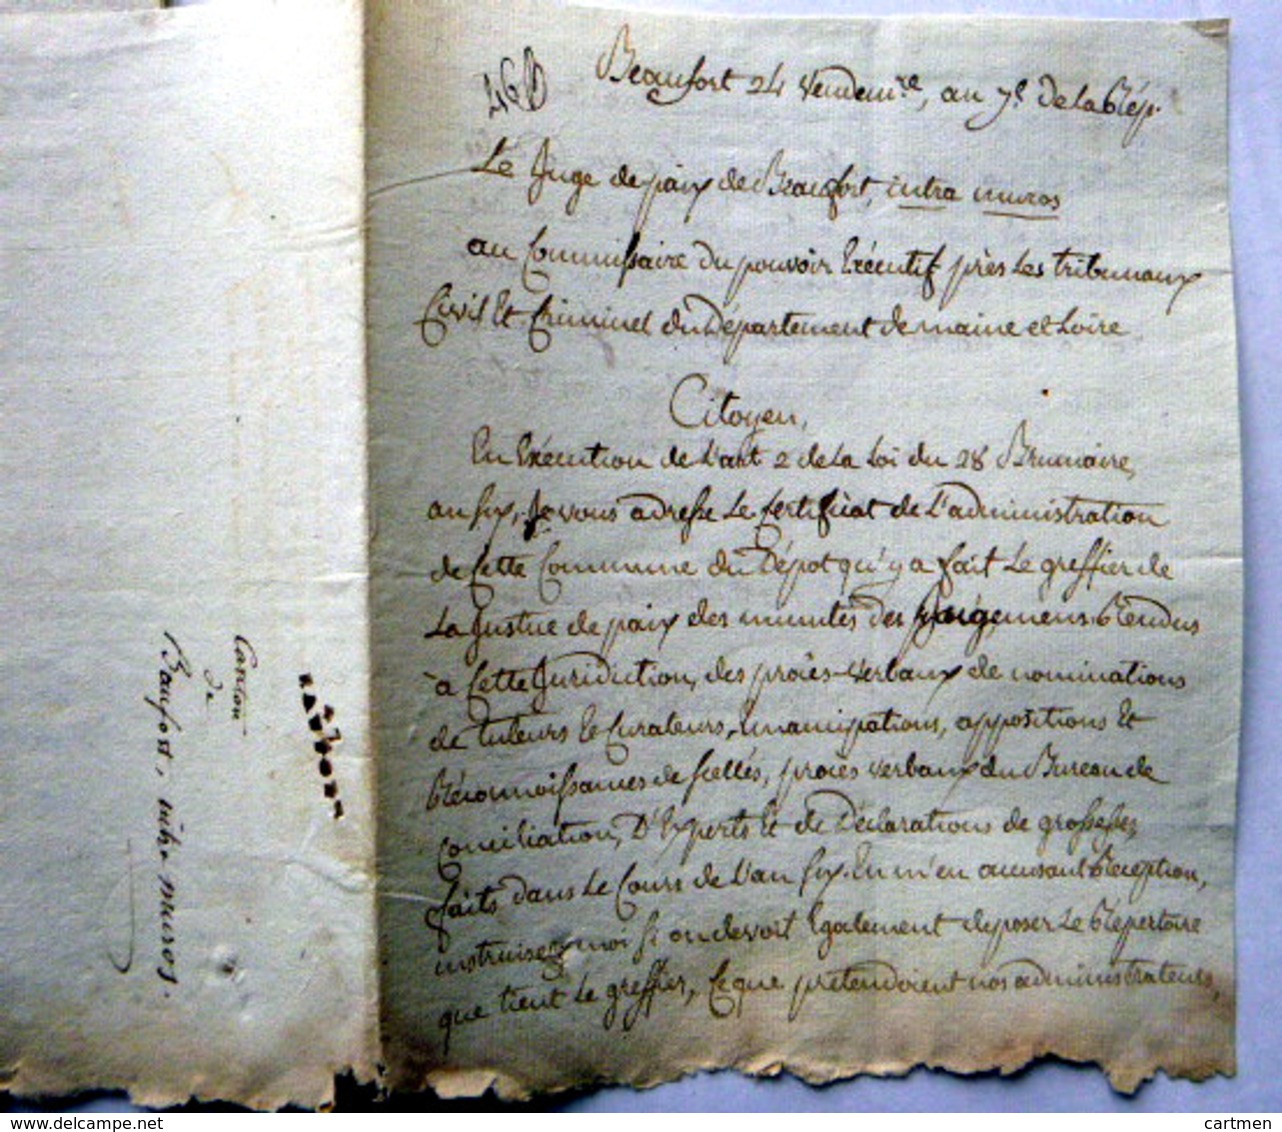 Beaufort 24 Vendem.re, an 7e de la Rép.
Le Juge de paix de Beaufort, intra muros
au Commissaire du pouvoir Exécutif près Les tribunaux
Civil Et Criminel du Département de maine et Loire
Citoyen,
En Exécution de L'art 2 de La Loi du 28 Brumaire,
an six, Je vous adresse Le Certificat de L'administration
de Cette Commune du Dépot qu'y a fait Le greffier de
La Justice de paix des minutes des Jugemens Rendus
à Cette Juridiction, des procès-verbaux de nominations
de tuteurs Et Curateurs, Emancipations, appositions Et
Réconnoissances de scellés, procès verbaux du Bureau de
Conciliation, D'Experts Et de Déclarations de grossesses,
faits dans Le Cours de L'an six. En m'en accusant Réception,
instruisez moi si on devoit Egalement déposer Le Répertoire
que tient Le greffier, Ce que prétendoient nos administrateurs,
Canton
de
Beaufort, intra muros.
www.delcampe.net
cartmen